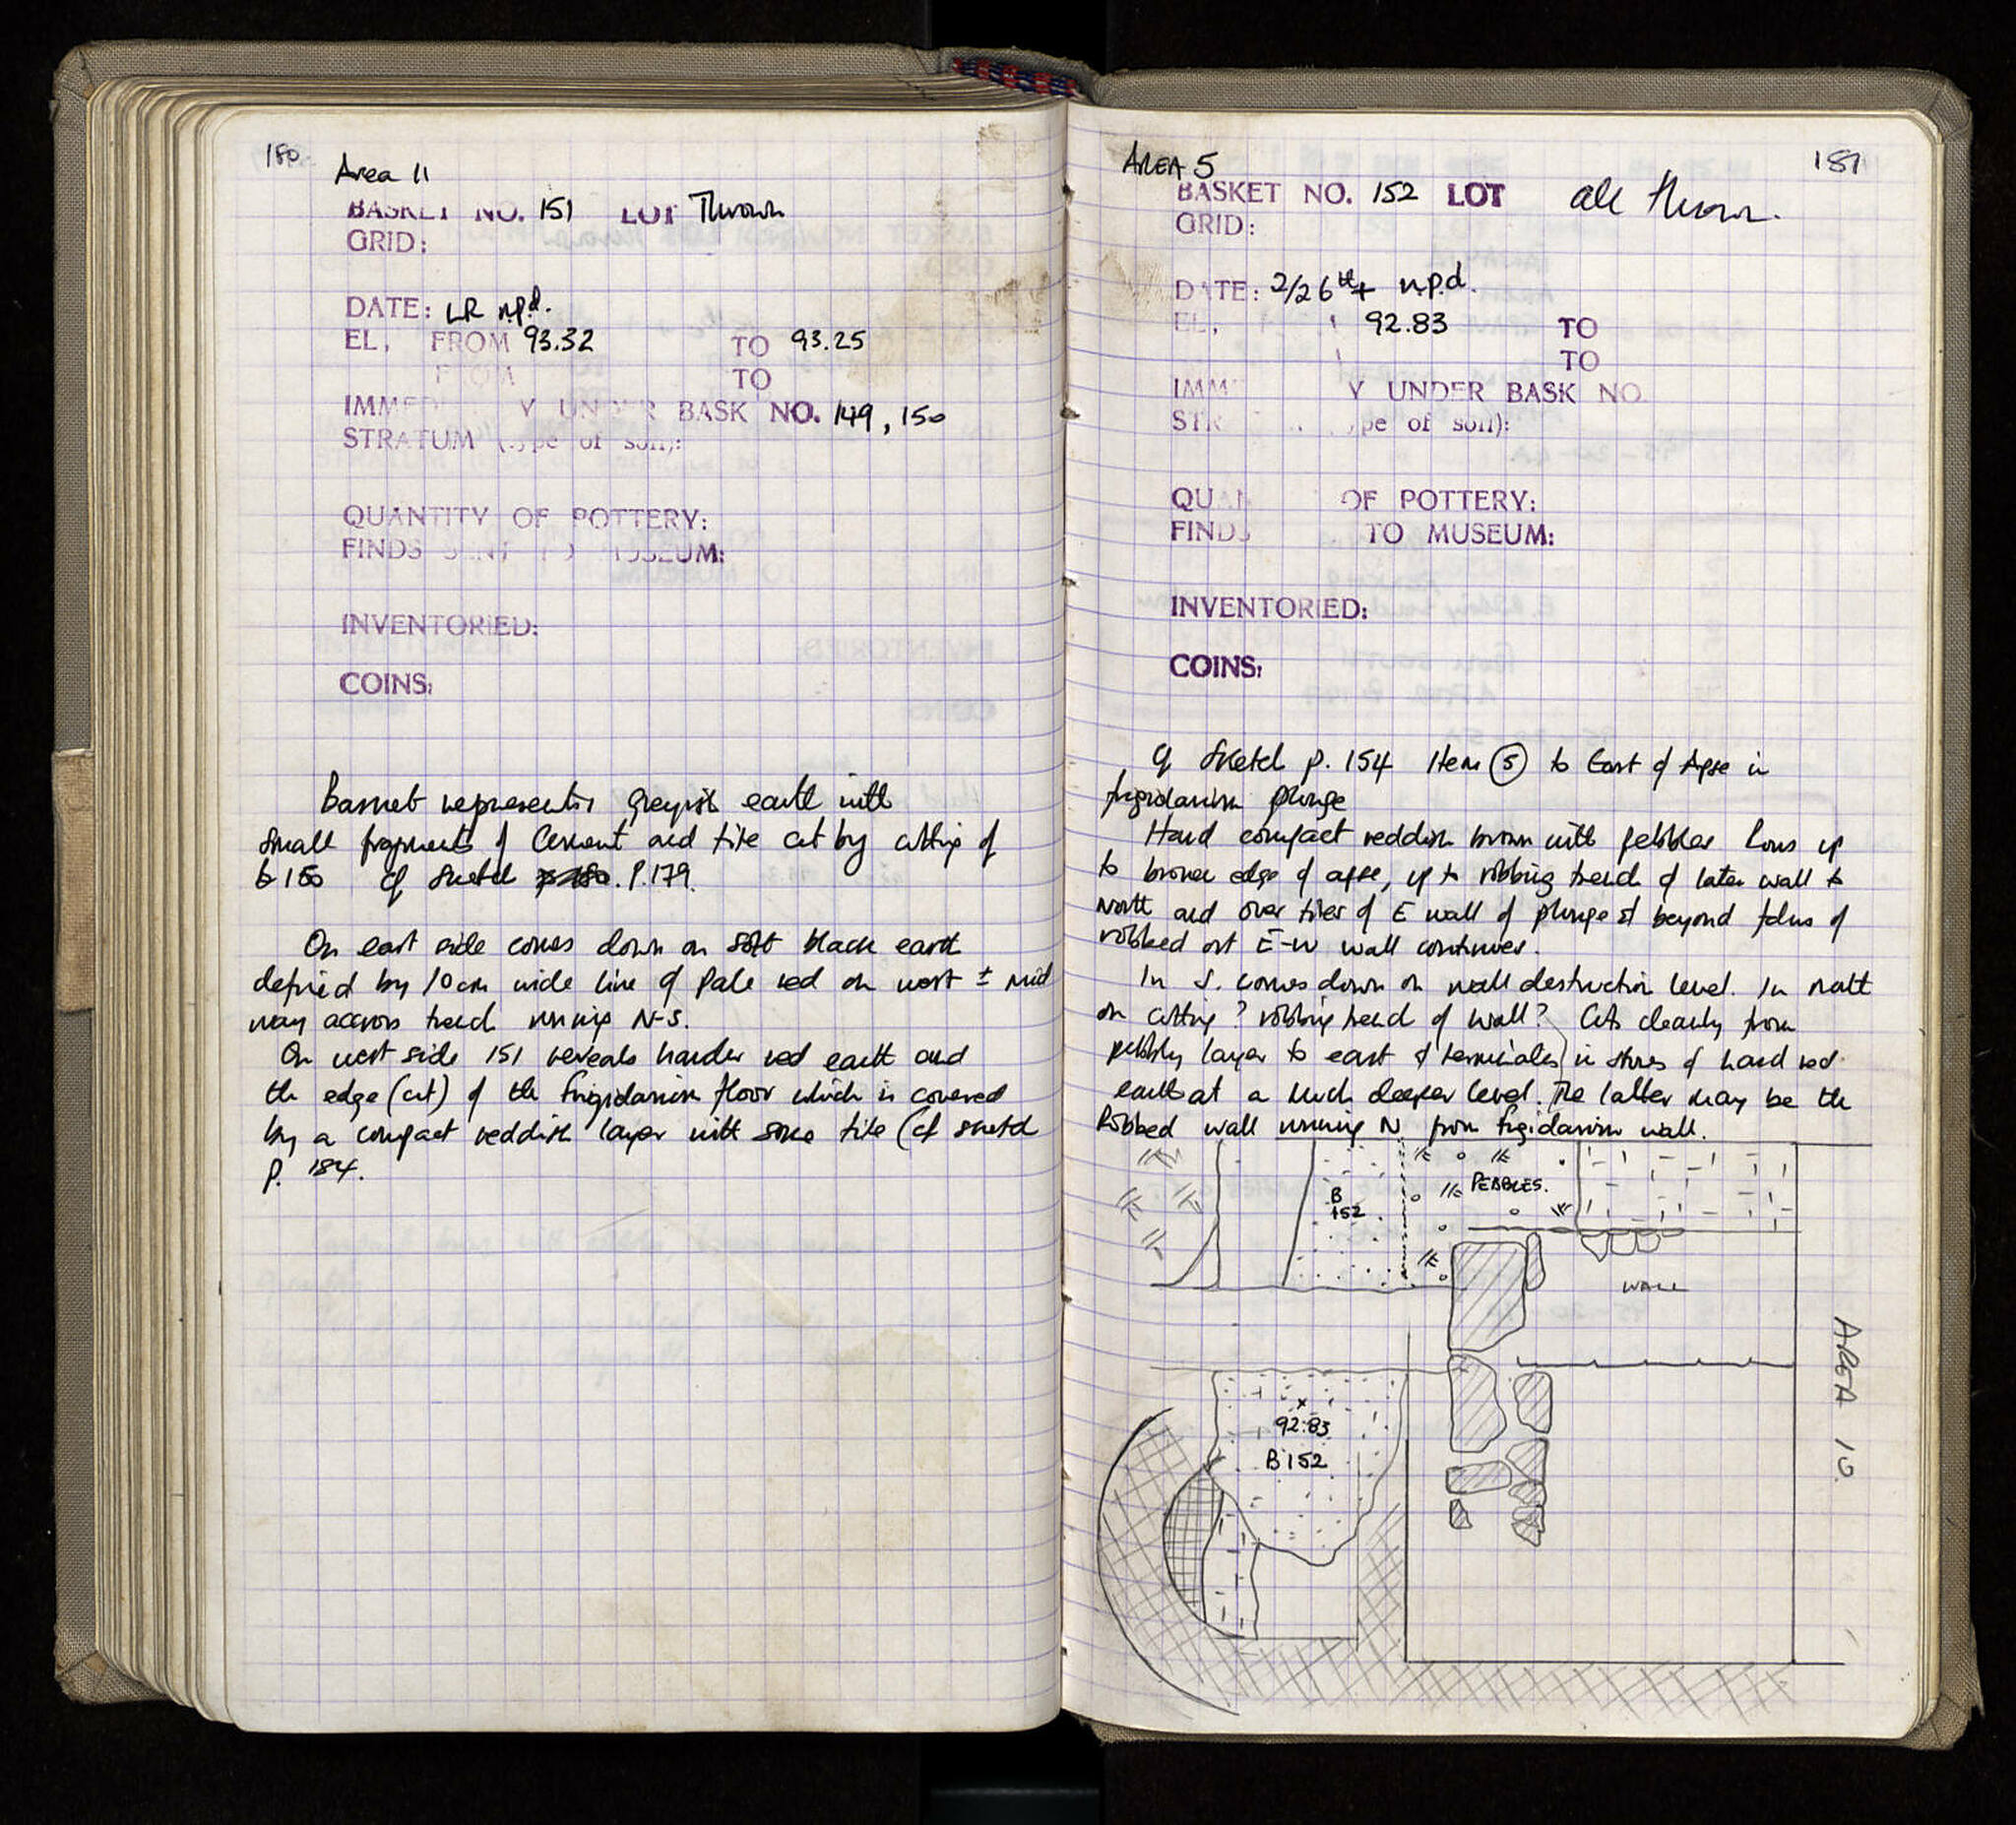 180
Area 11
BASKET NO. 151 LOT Thrown
GRID:
DATE: LR n.p.d.
EL, FROM 93.32 TO 93.25
FROM TO
IMMED Y UNDER BASK NO. 149, 150
STRATUM (type of soil):
QUANTITY OF POTTERY:
FINDS SENT TO MUSEUM:
INVENTORIED:
COINS:
Basket represents greyish earth with
small fragments of cement and tile cut by cutting of
b 150 cf sketch P. 179.
On east side comes down on soft black earth
defined by 10cm wide line of pale red on west ± mid
way accross trench running N-S.
On west side 151 reveals harder red earth and
the edge (cut) of the frigidarium floor which is covered
by a compact reddish layer with some tile (cf sketch
p. 184.
181
AREA 5
BASKET NO. 152 LOT all thrown.
GRID:
DATE: 2/26th + n.p.d.
EL, 92.83 TO
TO
IMM Y UNDER BASK NO
STR ype of soil):
QUAN OF POTTERY:
FINDS TO MUSEUM:
INVENTORIED:
COINS:
cf Sketch p. 154 Item (5) to East of Apse in
frigidarium plunge
Hard compact reddish brown with pebbles runs up
to broken edge of apse, up to robbing trench of later wall to
North and over tiles of E wall of plunge & beyond of
robbed out E-W wall continues.
In S. comes down on wall destruction level. In north
on cutting? robbing trench of wall? Cuts cleanly from
pebbly layer to east & terminates in of hard red
earth at a much deeper level. The latter may be the
Robbed wall running N from frigidarium wall.
B
152
PEBBLES.
WALL
92.83
B152
AREA 10.